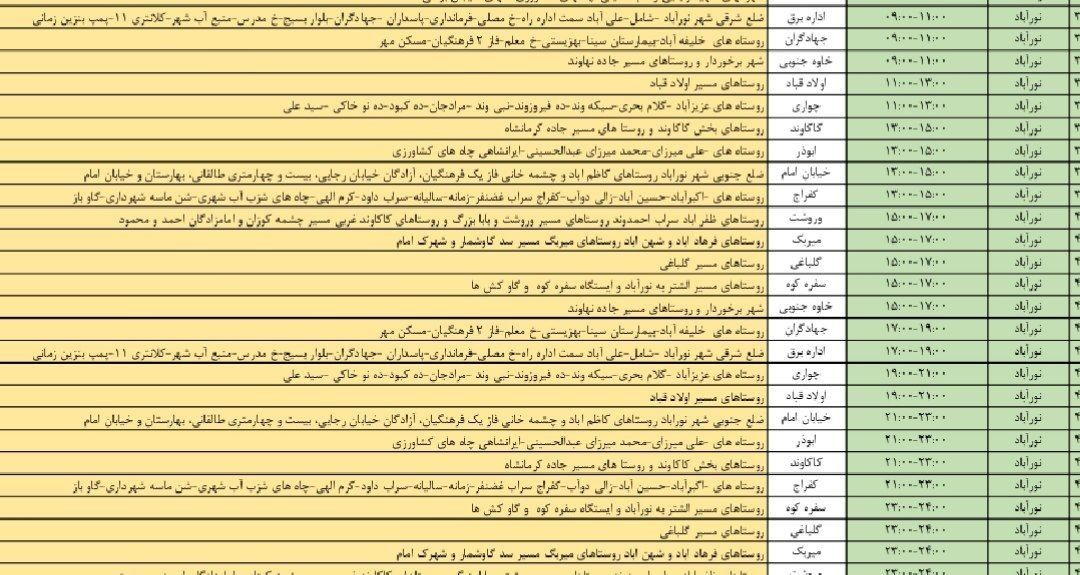 نورآباد ۰۹:۰۰-۱۱:۰۰ اداره برق ضلع شرقی شهر نورآباد -شامل-علی آباد سمت اداره راه-خ مصلی-فرمانداری-پاسداران -جهادگران-بلوار بسیج-خ مدرس-منبع آب شهر-کلانتری ۱۱-پمپ بنزین زمانی
نورآباد ۰۹:۰۰-۱۱:۰۰ جهادگران روستاه های خلیفه آباد-بیمارستان سینا-بهزیستی-خ معلم-فاز ۲ فرهنگیان-مسکن مهر
نورآباد ۰۹:۰۰-۱۱:۰۰ خاوه جنوبی شهر برخوردار و روستاهای مسیر جاده نهاوند
نورآباد ۱۱:۰۰-۱۳:۰۰ اولاد قباد روستاهای مسیر اولاد قباد
نورآباد ۱۱:۰۰-۱۳:۰۰ چواری روستاه های عزیزآباد -گلام بحری-سیکه وند-ده فیروزوند-نبی وند -مرادجان-ده کبود-ده نو خاکی -سید علی
نورآباد ۱۳:۰۰-۱۵:۰۰ کاکاوند روستاهای بخش کاکاوند و روستا های مسیر جاده کرمانشاه
نورآباد ۱۳:۰۰-۱۵:۰۰ ابوذر روستاه های -علی میرزای-محمد میرزای عبدالحسینی-ایرانشاهی چاه های کشاورزی
نورآباد ۱۳:۰۰-۱۵:۰۰ خیابان امام ضلع جنوبی شهر نوراباد روستاهای کاظم اباد و چشمه خانی فاز یک فرهنگیان، آزادگان خیابان رجایی، بیست و چهارمتری طالقانی، بهارستان و خیابان امام
نورآباد ۱۳:۰۰-۱۵:۰۰ کفراج روستاه های -اکبرآباد-حسین آباد-زالی دوآب-کفراج سراب غضنفر-زمانه-سالیانه-سراب داود-کرم الهی-چاه های شرب آب شهری-شن ماسه شهرداری-گاو باز
نورآباد ۱۵:۰۰-۱۷:۰۰ وروشت روستاهای ظفر اباد سراب احمدوند روستاهای مسیر وروشت و بابا بزرگ و روستاهای کاکاوند غربی مسیر چشمه کوزان و امامزادگان احمد و محمود
نورآباد ۱۵:۰۰-۱۷:۰۰ میربک روستاهای فرهاد اباد و شیهن اباد روستاهای میربگ مسیر سد گاوشمار و شهرک امام
نورآباد ۱۵:۰۰-۱۷:۰۰ گلباغی روستاهای مسیر گلباغی
نورآباد ۱۵:۰۰-۱۷:۰۰ سفره کوه روستاهای مسیر الشتر به نورآباد و ایستگاه سفره کوه و گاو کش ها
نورآباد ۱۵:۰۰-۱۷:۰۰ خاوه جنوبی شهر برخوردار و روستاهای مسیر جاده نهاوند
نورآباد ۱۷:۰۰-۱۹:۰۰ جهادگران روستاه های خلیفه آباد-بیمارستان سینا-بهزیستی-خ معلم-فاز ۲ فرهنگیان-مسکن مهر
نورآباد ۱۷:۰۰-۱۹:۰۰ اداره برق ضلع شرقی شهر نورآباد -شامل-علی آباد سمت اداره راه-خ مصلی-فرمانداری-پاسداران -جهادگران-بلوار بسیج-خ مدرس-منبع آب شهر-کلانتری ۱۱-پمپ بنزین زمانی
نورآباد ۱۹:۰۰-۲۱:۰۰ چواری روستاه های عزیزآباد -گلام بحری-سیکه وند-ده فیروزوند-نبی وند -مرادجان-ده کبود-ده نو خاکی -سید علی
نورآباد ۱۹:۰۰-۲۱:۰۰ اولاد قباد روستاهای مسیر اولاد قباد
نورآباد ۲۱:۰۰-۲۳:۰۰ خیابان امام ضلع جنوبی شهر نوراباد روستاهای کاظم اباد و چشمه خانی فاز یک فرهنگیان، آزادگان خیابان رجایی، بیست و چهارمتری طالقانی، بهارستان و خیابان امام
نورآباد ۲۱:۰۰-۲۳:۰۰ ابوذر روستاه های -علی میرزای-محمد میرزای عبدالحسینی-ایرانشاهی چاه های کشاورزی
نورآباد ۲۱:۰۰-۲۳:۰۰ کاکاوند روستاهای بخش کاکاوند و روستا های مسیر جاده کرمانشاه
نورآباد ۲۱:۰۰-۲۳:۰۰ کفراج روستاه های -اکبرآباد-حسین آباد-زالی دوآب-کفراج سراب غضنفر-زمانه-سالیانه-سراب داود-کرم الهی-چاه های شرب آب شهری-شن ماسه شهرداری-گاو باز
نورآباد ۲۳:۰۰-۲۴:۰۰ سفره کوه روستاهای مسیر الشتر به نورآباد و ایستگاه سفره کوه و گاو کش ها
نورآباد ۲۳:۰۰-۲۴:۰۰ گلباغی روستاهای مسیر گلباغی
نورآباد ۲۳:۰۰-۲۴:۰۰ میربک روستاهای فرهاد اباد و شیهن اباد روستاهای میربگ مسیر سد گاوشمار و شهرک امام